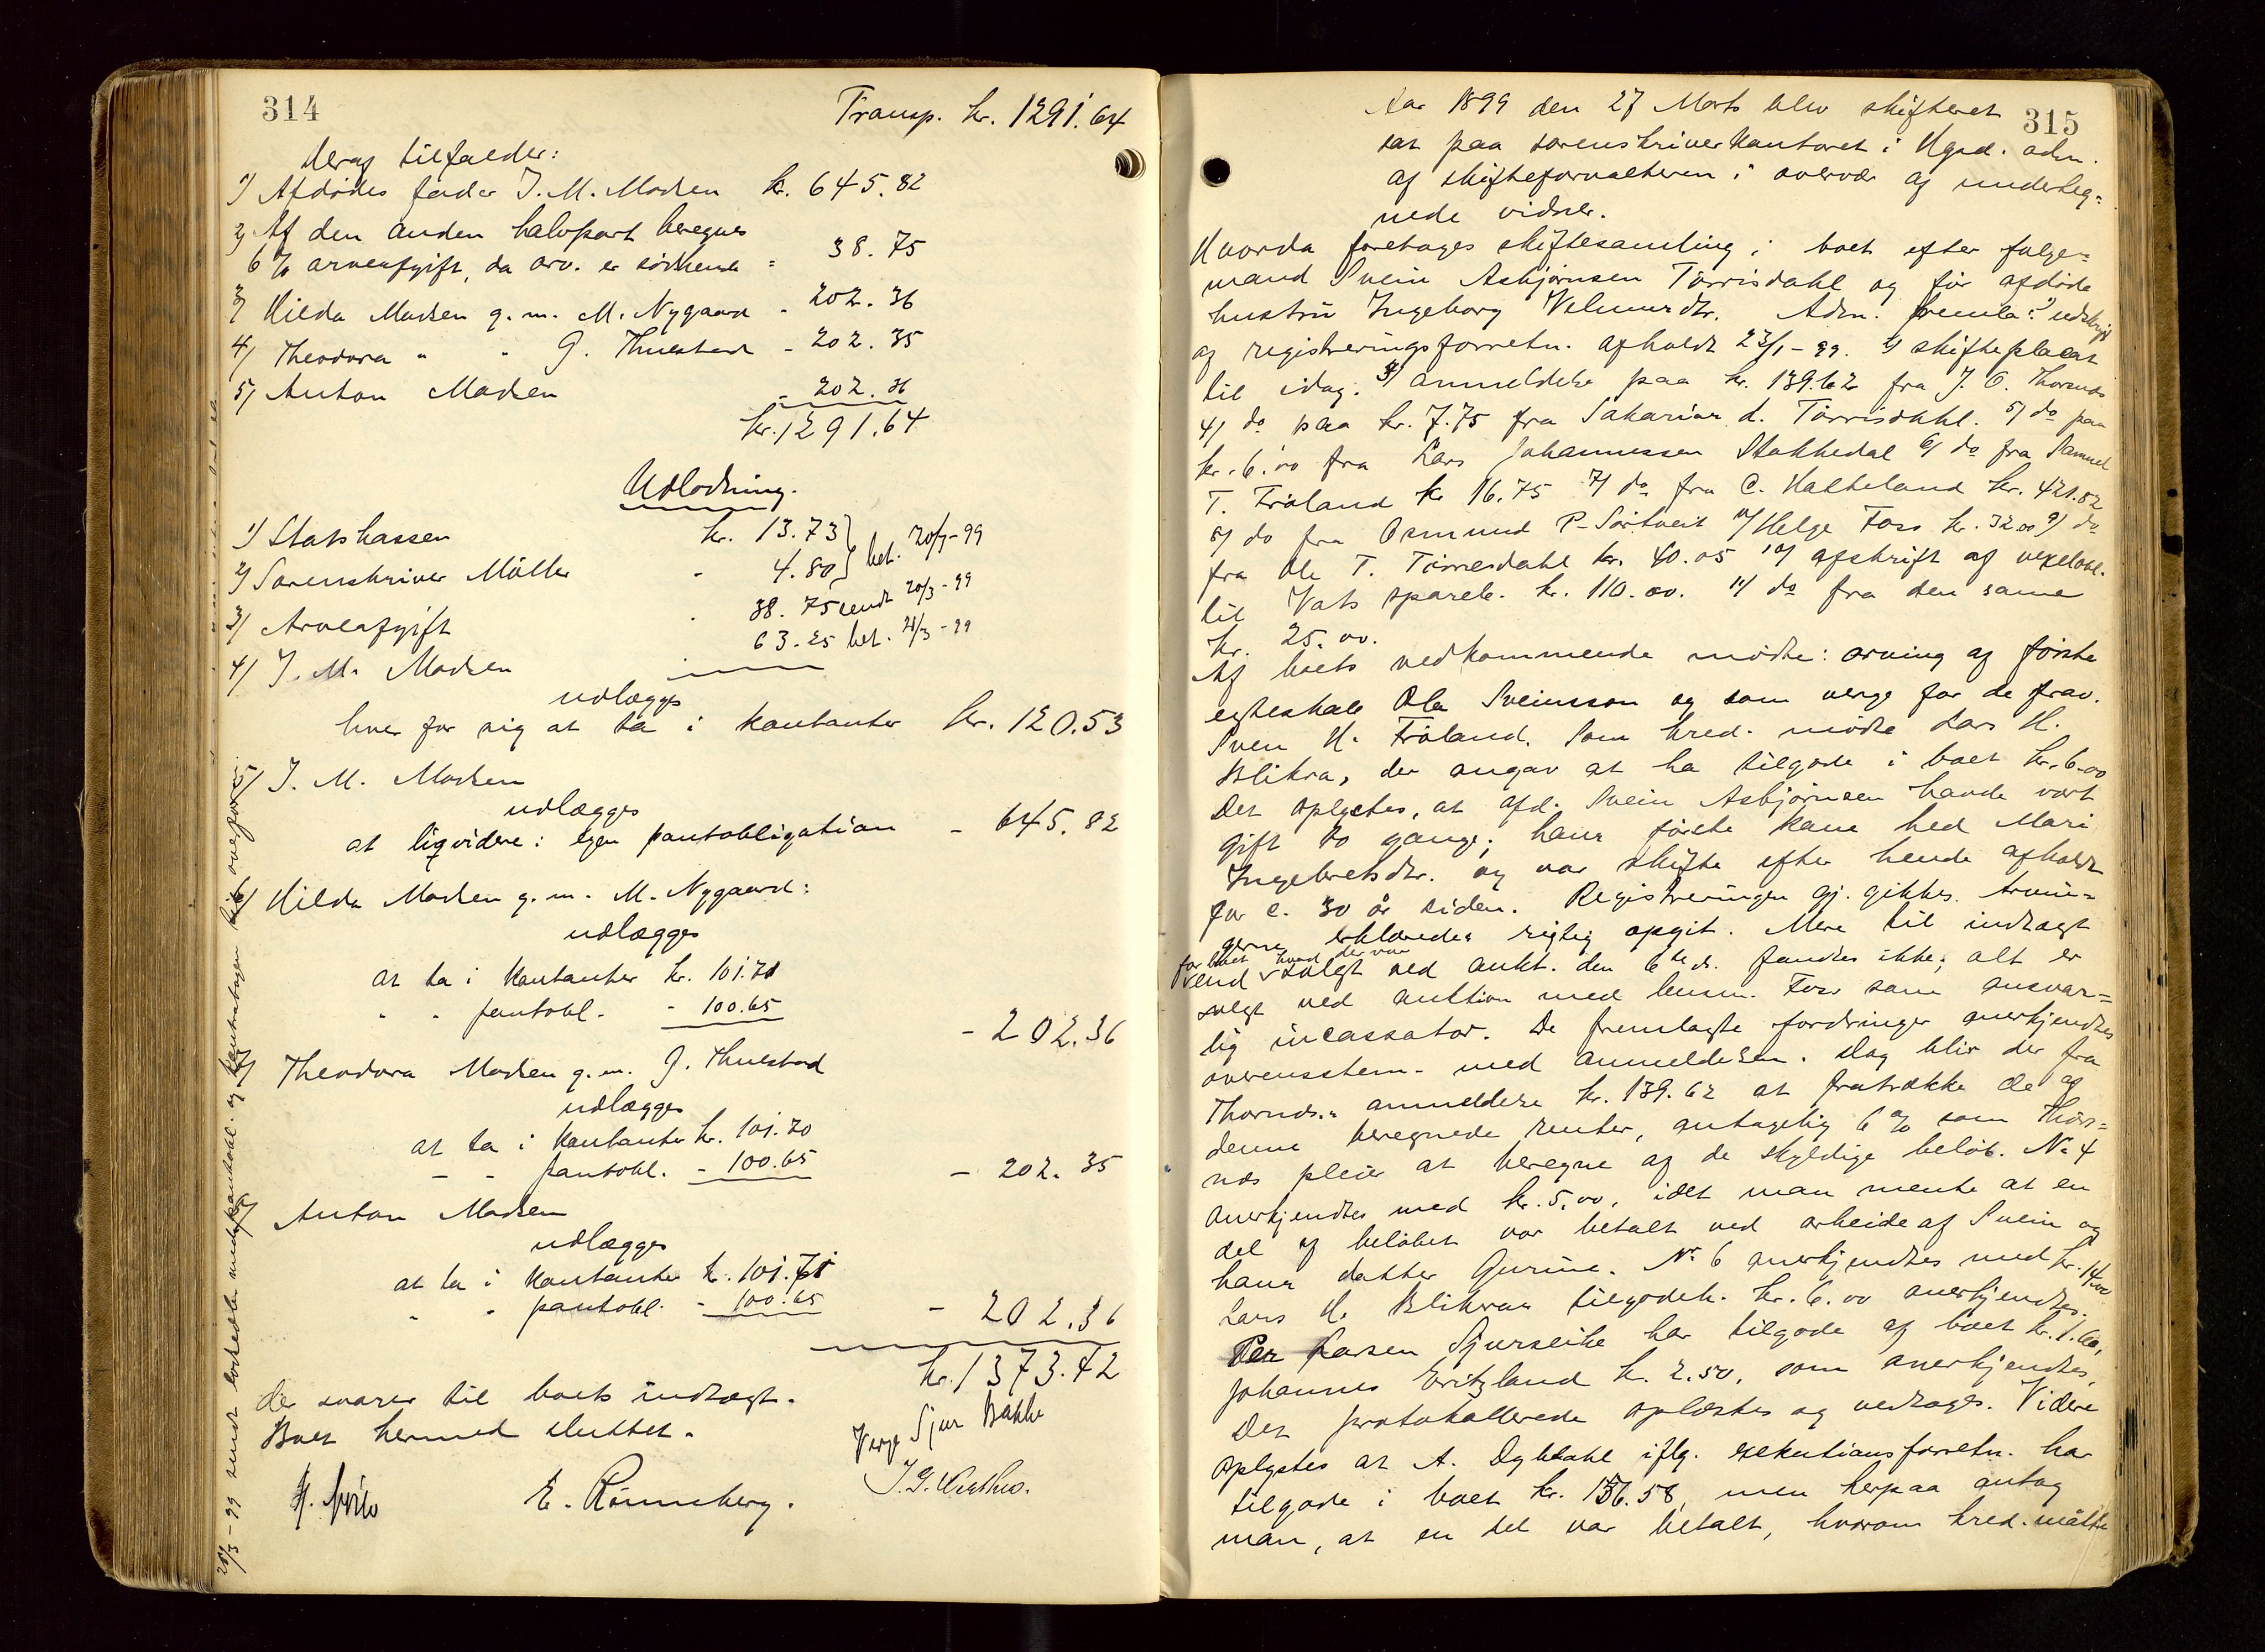 314
Transp. kr. 1291.64
Deraf tilfalder:
1) Afdødes fader J. M. Madsen kr. 645.82
2) Af den anden halvpart beregnes
6 % arveafgift, da arv. er södskende - 38.75
3) Hilda Madsen g. m. M. Nygaard - 202.36
4) Theodora " " G. Thuestad - 202.35
5) Anton Madsen - 202.36
kr. 1291.64
Udlodning.
1) Statskassen kr. 13.73 } bet. 20/3-99
2) Sorenskriver Müller - 4.80 }
3) Arveafgift - 38.75 sendt 20/3-99
4) J. M. Madsen 63.25 bet. 21/3-99
udlægges
hver for sig at ta i kontanter kr. 120.53
5) J. M. Madsen
udlægges
at liqvidere i egen pantobligation - 645.82
6) Hilda Madsen g. m. M. Nygaard:
udlægges
at ta i kontanter kr. 101.71
" " pantobl. - 100.65
- 202.36
7) Theodora Madsen g. m. G. Thuestad
udlægges
at ta i kontanter kr. 101.70
- - pantobl. - 100.65 - 202.35
8) Anton Madsen
udlægges
at ta i kontanter k. 101.71
" " pantobl. - 100.65
- 202.36
kr. 1373.42
der svarer til boets indtægt.
Boet hermed sluttet.
Verge Sjur Bakke
E. Rönneberg.
20/3-99 sendt
315
Aar 1899 den 27 Marts blev skifteret
sat paa sorenskriverkontoret i Hgsd. adm.
af skifteforvalteren i overvær af underteg=
nede vidner.
Hvorda foretages skiftesamling i boet efter følge=
mand Svein Asbjørnsen Törrisdahl og før afdöde
hustru Ingeborg Velmundtr. Adm. fremla: 1) udskrift
af registreringsforretn. afholdt 23/1-99. 2) skifteplacat
til idag. 3) anmeldelse paa kr. 139.62 fra J. C. Thorsnæs
4) do paa kr. 7.75 fra Sakarias d. Törrisdahl. 5) do paa
kr. 6.00 fra Lars Johannessen Stakkedal 6) do fra Samuel
T. Fröland kr 16.75 7) do fra C. Halheland kr. 421.52
8) do fra Osmund P. Sörtveit Helge Foss kr. 32.00 9) do
fra Ole T. Törresdahl kr. 40.05 10) afskrift af vexelobl.
til Vats spareb. kr. 110.00. 11) do fra den same
kr. 25.00.
Af boets vedkommende mödte: arving af förste
egteskab Ole Sveinsson og som verge for de frav.
Sven H. Fröland. Som kred. mödte Lars H.
Blikra, der angav at ha tilgode i boet kr. 6.00
Det oplystes, at afd. Svein Asbjørnsen havde vært
gift to gange; hans förste kone hed Mari
Ingebretsdtr. og var skifte efter hende afholdt
for c. 30 år siden. Registreringen gj. gikkes. Arvin=
gerne erklærede rigtig opgit. Mere til indtægt
for boet end hvad der var solgt ved aukt. den 6te ds. fandtes ikke; alt er
solgt ved auktion med lensm. Foss som ansvar=
lig incassator. De fremlagte fordringer anerkjendtes
overensstem. med anmeldelsen. Dog blir der fra
Thorsnæs. anmeldelse kr. 139.62 at fratrække de af
denne beregnede renter, antagelig 6 % som Thors=
næs pleier at beregne af de skyldige belöb. No 4
anerkjendtes med kr. 5.00, idet man mente at en
del af belöbet var betalt ved arbeide af Svein og
hans datter Gurine. No 6 anerkjendtes med kr. 14.00
Lars H. Blikras tilgodeh. kr. 6.00 anerkjendtes.
Per Larsen Sjurseike har tilgode af boet kr. 1.60,
Johannes Eritzland k. 2.50, som anerkjendtes,
Det protokollerede oplæstes og vedtoges. Videre
oplystes at A. Dybdahl iflg. exekutionsforretn. har
tilgode i boet kr. 156.58, men herpaa antog
man, at en del var betalt, hvorom kred. måtte